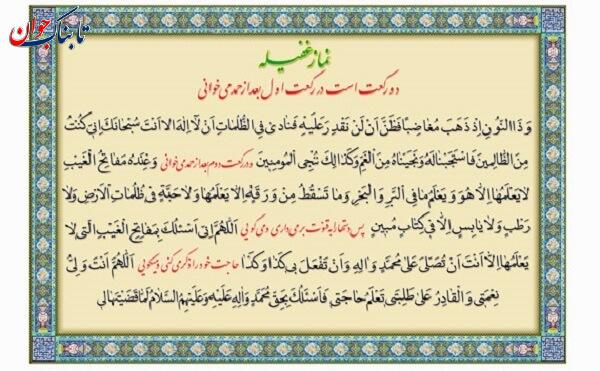 تابناک جوان
نماز غفیله
دو رکعت است در رکعت اول بعد از حمد می خوانی
وَ ذَا النُّونِ اِذ ذَهَبَ مُغاضِباً فَظَنَّ اَن لَن نَقدِرَ عَلَیهِ فَنادی فِی الظُّلُماتِ اَن لا اِلهَ اِلا اَنتَ سُبحانَکَ اِنّی کُنتُ
مِنَ الظّالِمینَ فَاستَجَبنا لَهُ وَ نَجَّیناهُ مِنَ الغَمِّ وَ کَذلِکَ نُنجِی المُومِنینَ و در رکعت دوم بعد از حمد می خوانی وَ عِندَهُ مَفاتِحُ الغَیبِ
لا یَعلَمُها اِلاّ هُوَ وَ یَعلَمُ ما فِی البَرِّ وَ البَحرِ وَ ما تَسقُطُ مِن وَرَقَهٍ اِلاّ یَعلَمُها وَ لا حَبَّهٍ فی ظُلُماتِ الاَرضِ وَ لا
رَطبٍ وَ لا یابِسٍ اِلاّ فی کِتابٍ مُبینٍ پس دستها را به قنوت برمی داری و می گویی اَللّهُمَّ اِنّی اَسئَلُکَ بِمَفاتِحِ الغَیبِ الَّتی لا
یَعلَمُها اِلاّ اَنتَ اَن تُصَلِّیَ عَلی مُحَمَّدٍ وَ الِهِ وَ اَن تَفعَلَ بی کَذا وَ کَذا حاجت خود را ذکر می کنی و میگویی اَللّهُمَّ اَنتَ وَلِیُّ
نِعمَتی وَ القادِرُ عَلی طَلِبَتی تَعلَمُ حاجَتی فَاَسئَلُکَ بِحَقِّ مُحَمَّدٍ وَ الِهِ عَلَیهِ وَ عَلَیهِمُ السَّلامُ لَمّا قَضَیتَها لی